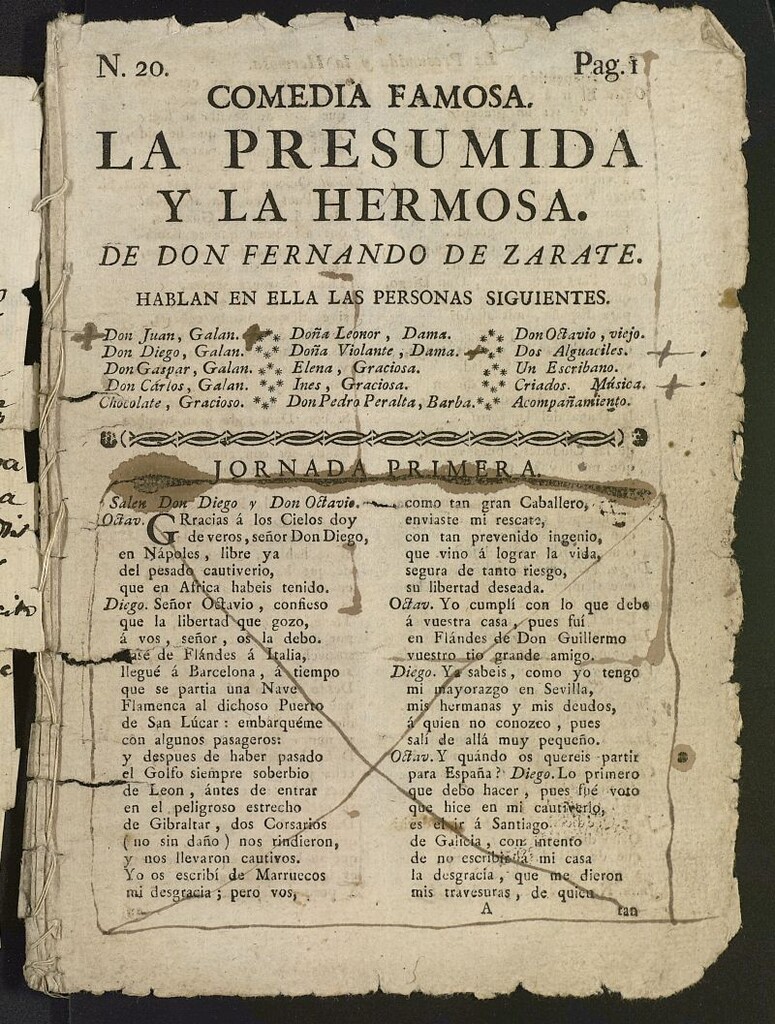 N. 20.
Pag. 1
COMEDIA FAMOSA.
LA PRESUMIDA
Y LA HERMOSA.
DE DON FERNANDO DE ZARATE.
HABLAN EN ELLA LAS PERSONAS SIGUIENTES.
Don Juan, Galan.
Don Diego, Galan.
Don Gaspar, Galan.
Don Cárlos, Galan.
Chocolate, Gracioso.
Doña Leonor, Dama.
Doña Violante, Dama.
Elena, Graciosa.
Ines, Graciosa.
Don Pedro Peralta, Barba.
Don Octavio, viejo.
Dos Alguaciles.
Un Escribano.
Criados. Música.
Acompañamiento.
JORNADA PRIMERA.
Salen Don Diego y Don Octavio.
Octav. GRracias á los Cielos doy
de veros, señor Don Diego,
en Nápoles, libre ya
del pesado cautiverio,
que en Africa habeis tenido.
Diego. Señor Octavio, confieso
que la libertad que gozo,
á vos, señor, os la debo.
Pasé de Flándes á Italia,
llegué á Barcelona, á tiempo
que se partia una Nave
Flamenca al dichoso Puerto
de San Lúcar: embarquéme
con algunos pasageros:
y despues de haber pasado
el Golfo siempre soberbio
de Leon, ántes de entrar
en el peligroso estrecho
de Gibraltar, dos Corsarios
(no sin daño) nos rindieron,
y nos llevaron cautivos.
Yo os escribí de Marruecos
mi desgracia; pero vos,
como tan gran Caballero,
enviaste mi rescate,
con tan prevenido ingenio,
que vino á lograr la vida,
segura de tanto riesgo,
su libertad deseada.
Octav. Yo cumplí con lo que debo
á vuestra casa, pues fuí
en Flándes de Don Guillermo
vuestro tio grande amigo.
Diego. Ya sabeis, como yo tengo
mi mayorazgo en Sevilla,
mis hermanas y mis deudos,
á quien no conozco, pues
salí de allá muy pequeño.
Octav. Y quándo os quereis partir
para España? Diego. Lo primero
que debo hacer, pues fué voto
que hice en mi cautiverio,
es el ir á Santiago
de Galicia, con intento
de no escribir á mi casa
la desgracia, que me dieron
mis travesuras, de quien
A
tan